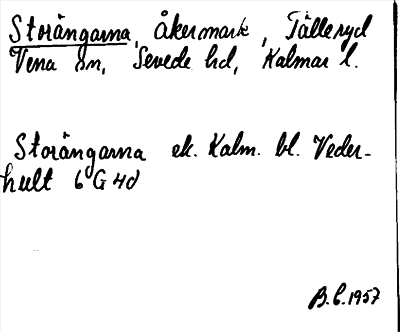 Storängarna, Åkermark, Tälleryd
Vena sn, Sevede hd, Kalmar l.
Storängarna ek. Kalm. bl. Veder-
hult 6 G 4d
B.C. 1957